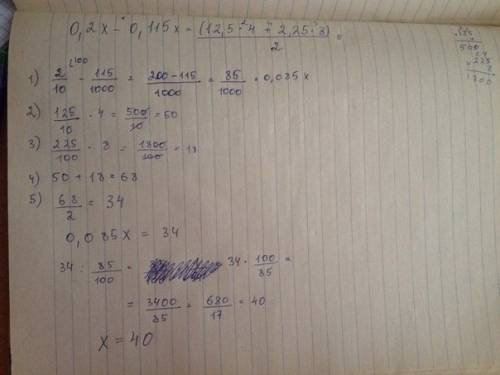 0,2x - 0,115x = (12,5 · 4 + 2,25 · 8) / 2 =
1) 2/10 - 115/1000 = (200-115)/1000 = 85/1000 = 0,085x
2) 125/10 · 4 = 500/10 = 50
3) 225/100 · 8 = 1800/100 = 18
4) 50 + 18 = 68
5) 68/2 = 34
0,085x = 34
34 : 85/100 = 34 · 100/85 =
= 3400/85 = 680/17 = 40
x = 40